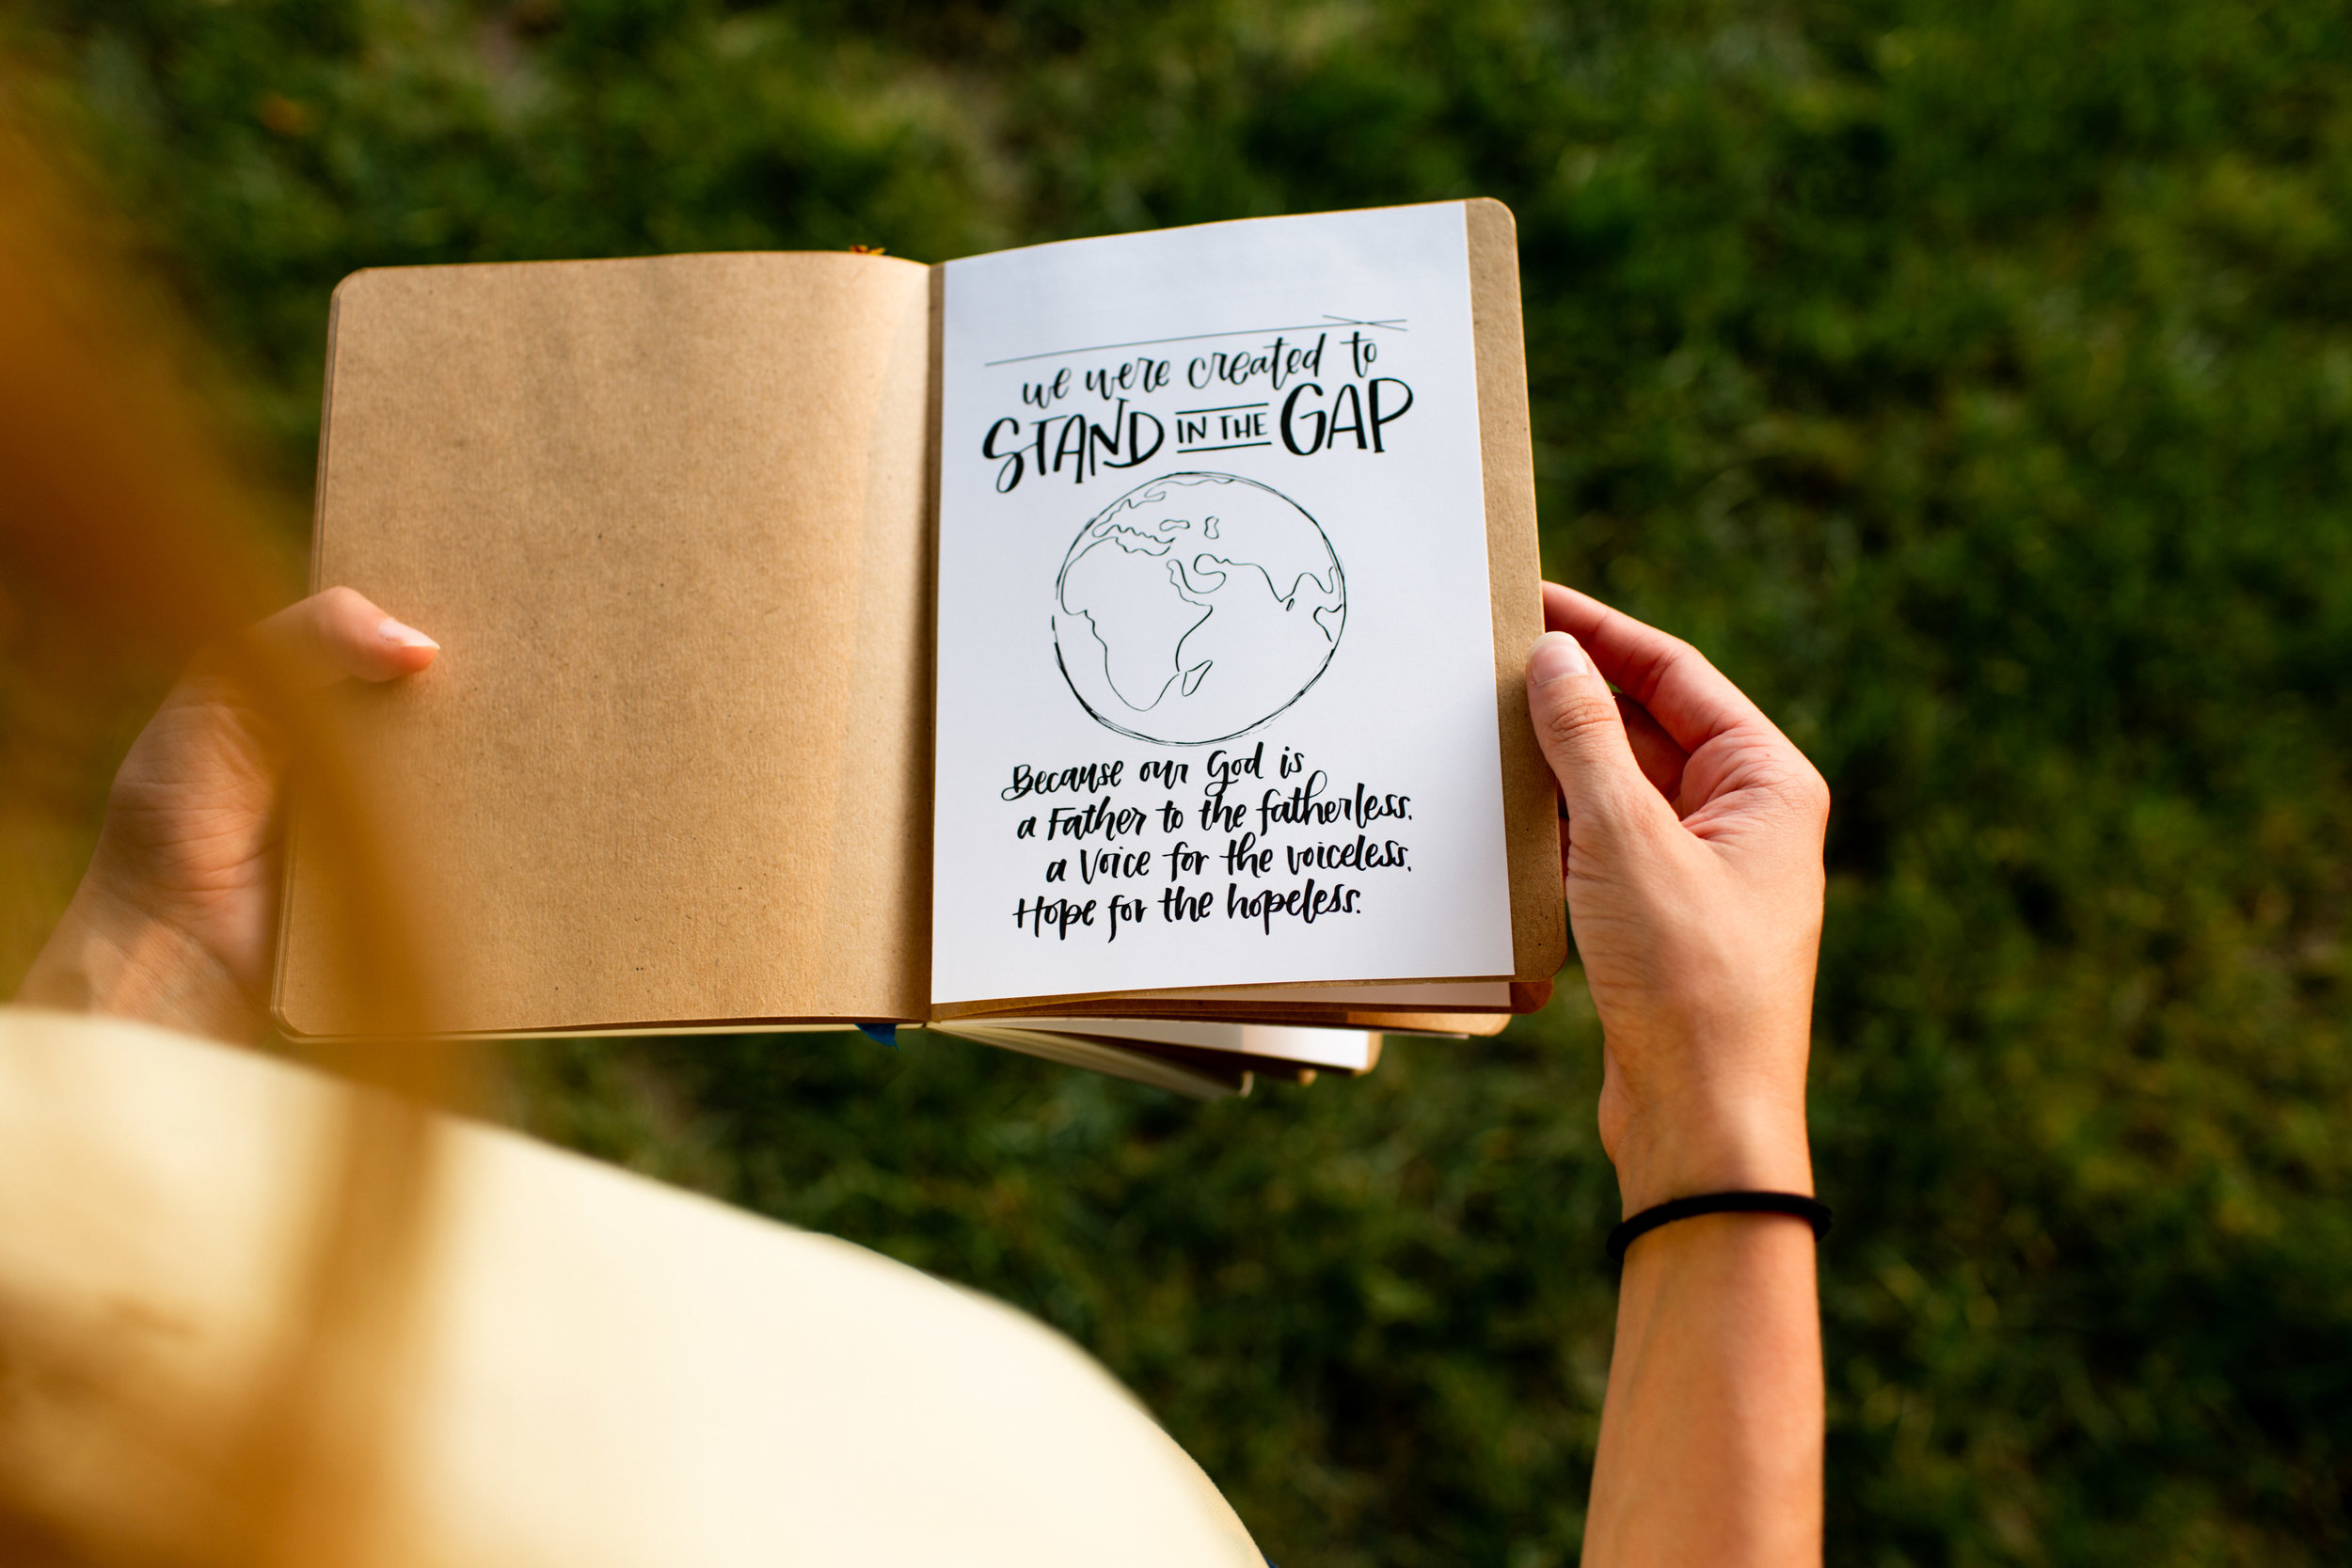 we were created to
STAND IN THE GAP
Because our God is
a Father to the fatherless.
a Voice for the voiceless.
Hope for the hopeless.